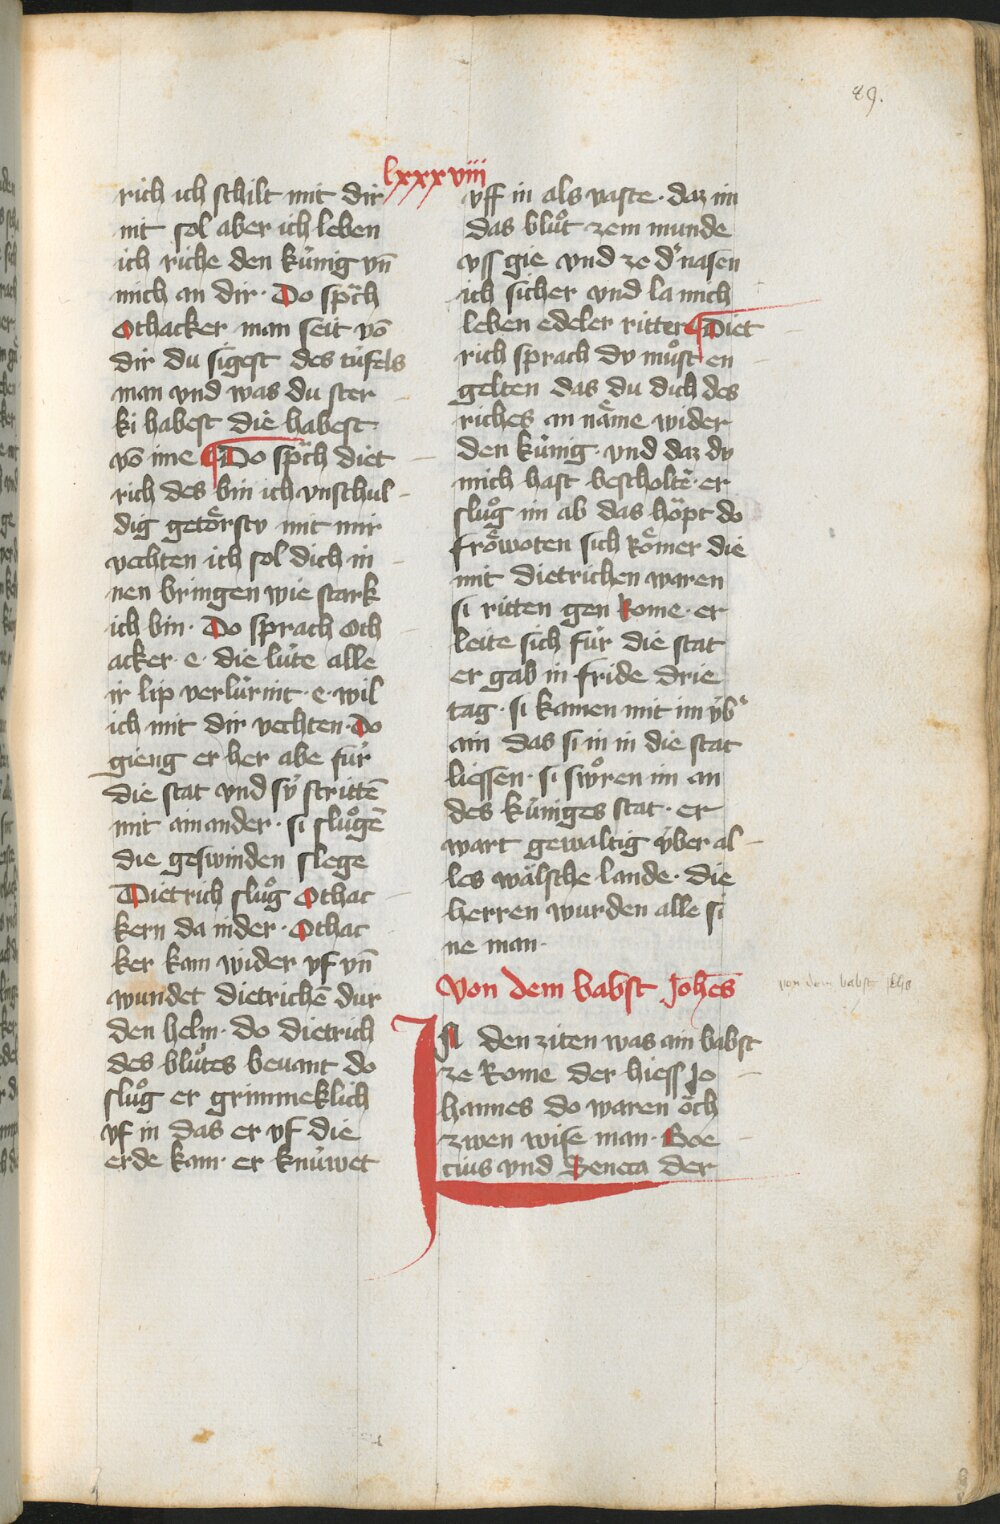 89.
lxxxviii
rich ich schilt mit dir
nit sol aber ich leben
ich riche den kúnig vn̄
mich an dir · Do sp̄ch
Othacker man seit vō
dir du sigest des túfels
man vnd was du ster
ki habest die habest
vō ime ¶ Do sp̄ch diet
rich des bin ich vnschul
dig getoͤrstv mit mir
vechten ich sol dich in
nen bringen wie stark
ich bin · Do sprach Oth
acker · e · die lúte alle
ir lip verlúrnit · e · wil
ich mit dir vechten · Do
gieng er her abe fúr
die stat vnd sÿ strittē
mit amander · si sluͦgē
die geswinden slege
Dietrich sluͦg Othac
kern da nider · Othac
ker kam wider vf vn̄
wundet dietrichē dur
den helm · do dietrich
des bluͦtes bevant do
sluͦg er grimmeklich
vf in das er vf die
erde kam · er knúwet
vff in als vaste · daz im
das bluͦt zem munde
vss gie vnd ze d' nasen
ich sicher vnd la mich
leben edeler ritter ¶ Diet
rich sprach dv muͦst en
gelten das du dich des
riches an naͤme wider
den kúnig · vnd daz dv
mich hast bescholtē · er
sluͦg im ab das hoͤpt do
froͤwoten sich Roͤmer die
mit dietrichen waren
si ritten gen Rome · er
leite sich fúr die stat
er gab in fride drie
tag · si kamen mit im v́b'
ain das si in in die stat
liessen · si swuͦren im an
des kúniges stat · er
wart gewaltig v́ber al
les waͤlsche lande · die
herren wurden alle si
ne man ·
Von dem babst Joh̄es
IN den ziten was ain babst
ze Rome der hiess Jo
hannes do waren oͤch
zwen wise man · Boe
cius vnd Seneca der
von dem babst Johs